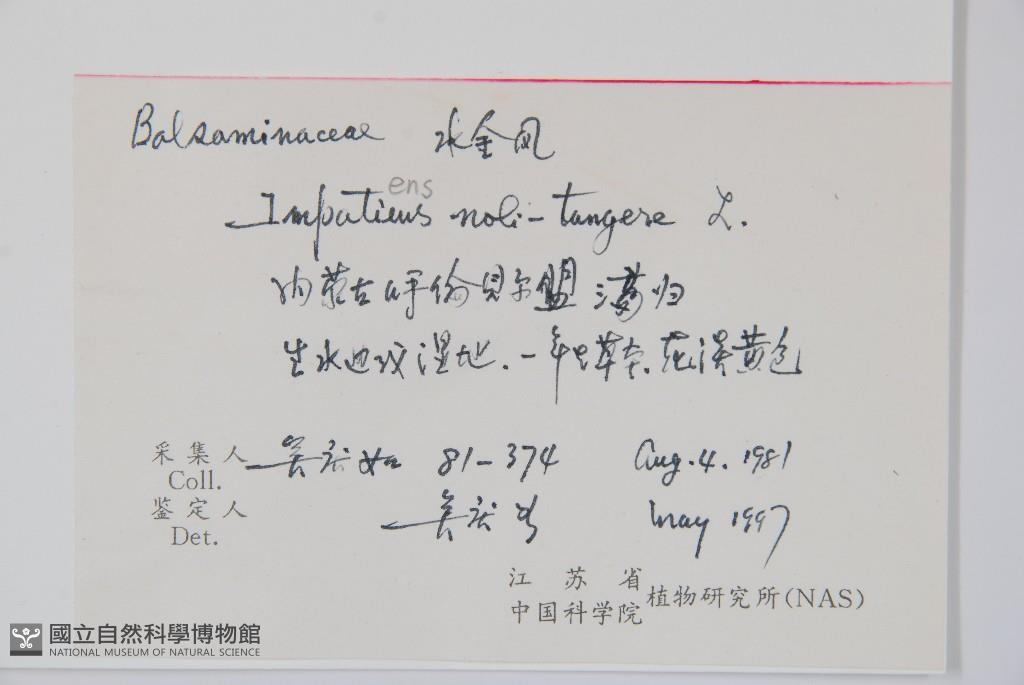 Balsaminaceae 水金凤
ens
Impatiens noli-tangere L.
内蒙古呼伦贝尔盟 满归
生水边及湿地.一年生草本.花深黄色
采集人 吴 如 81-374 Aug. 4. 1981
Coll.
鉴定人 吴 May 1997
Det.
江苏省
中国科学院 植物研究所(NAS)
國立自然科學博物館
NATIONAL MUSEUM OF NATURAL SCIENCE